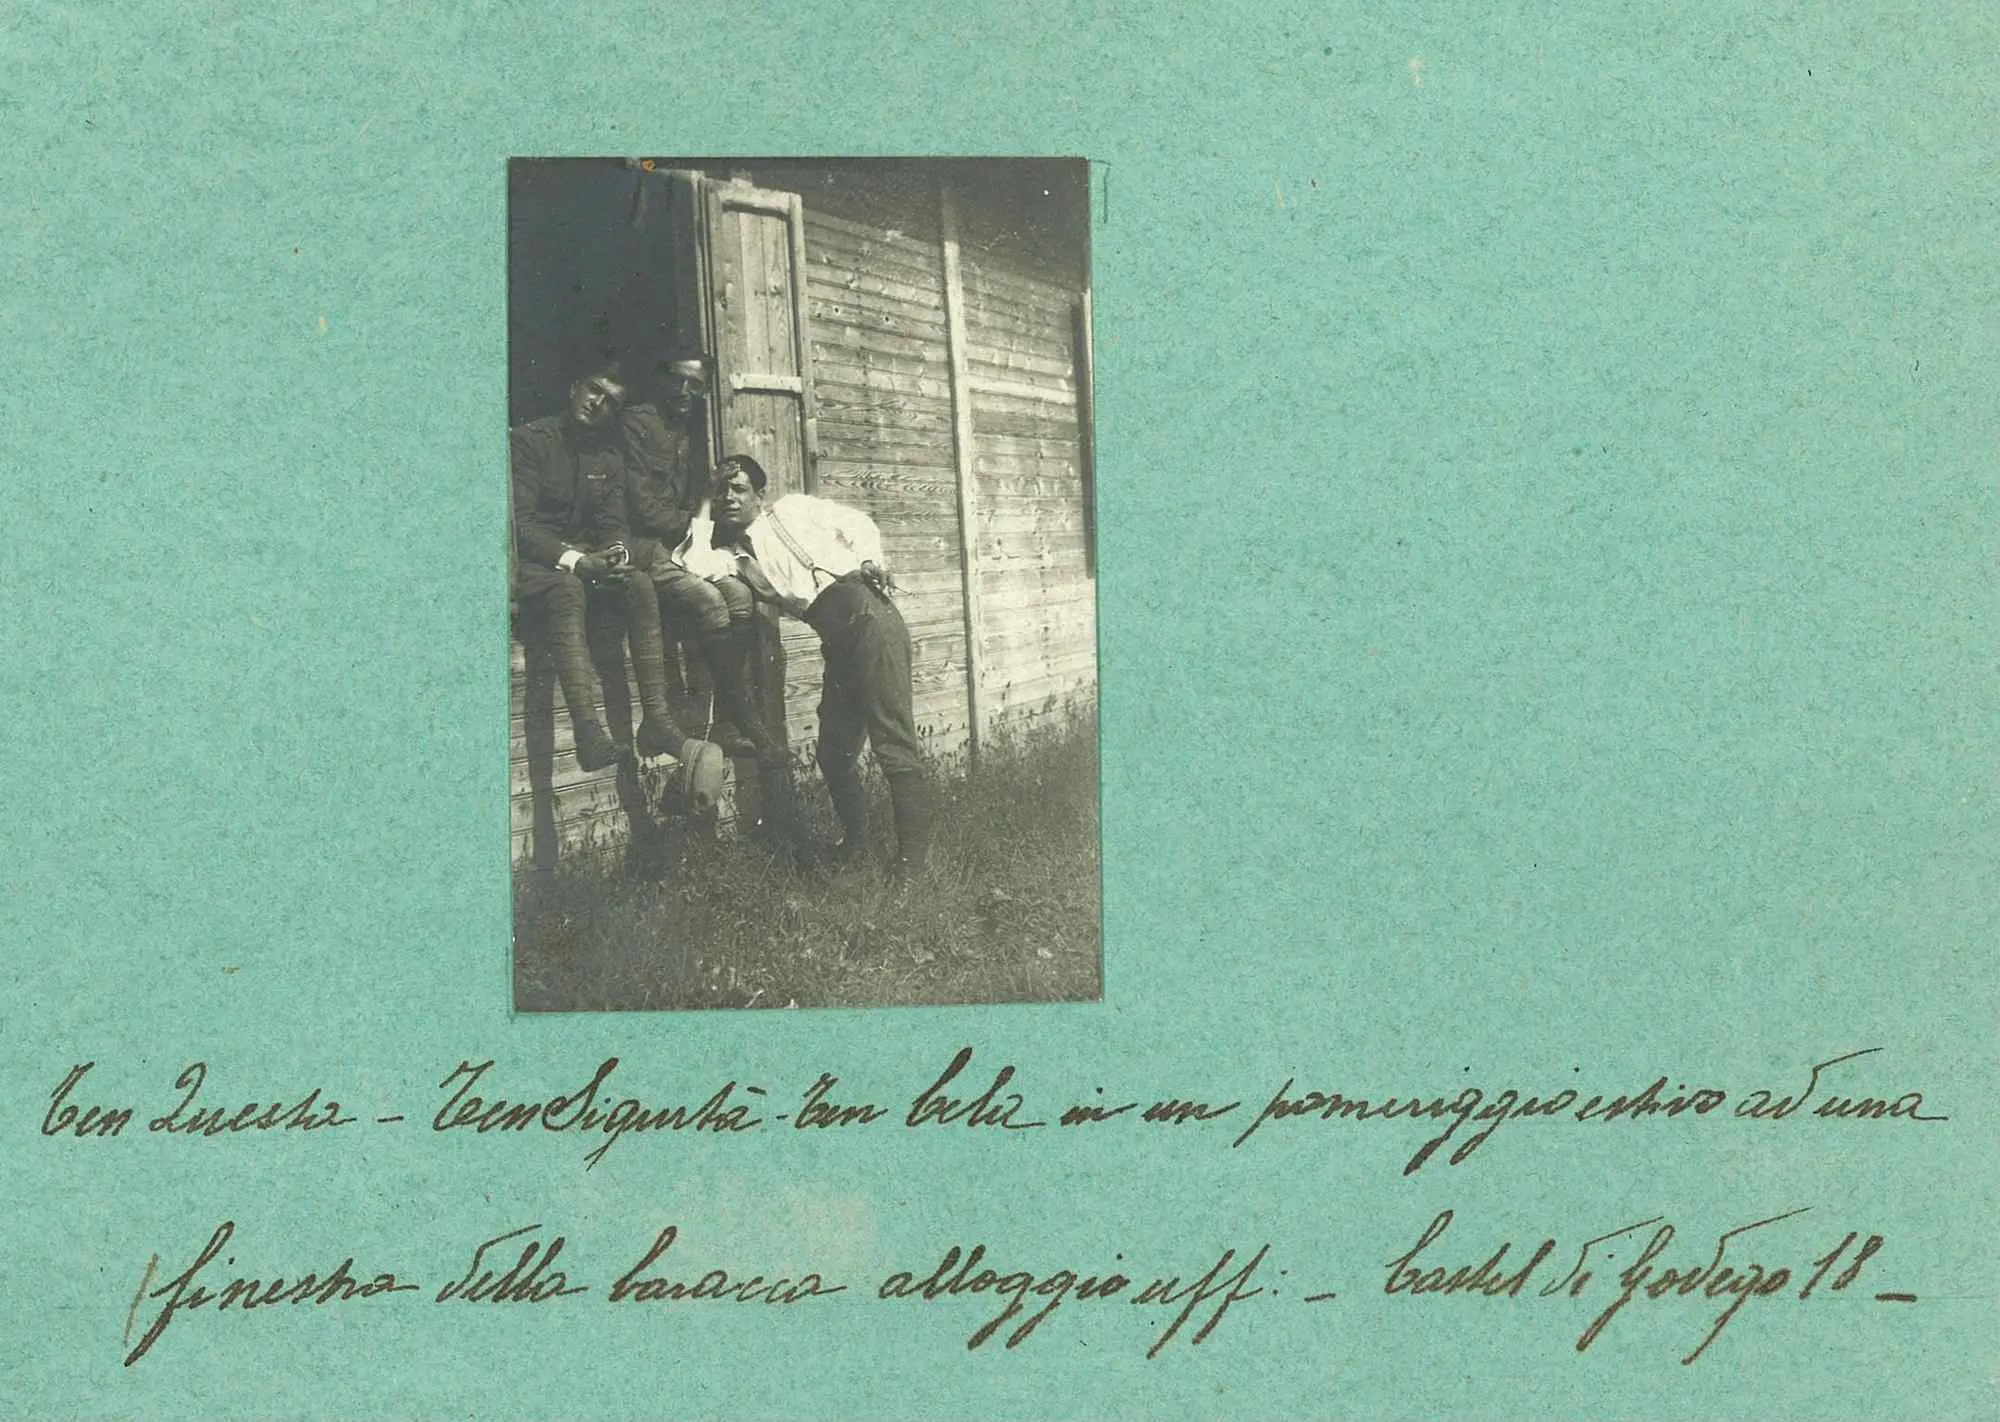 Ten Questa - Ten Sigurtà - Ten Cela in un pomeriggio estivo ad una
finestra della baracca alloggio uff: - Castel di Godego 18 -